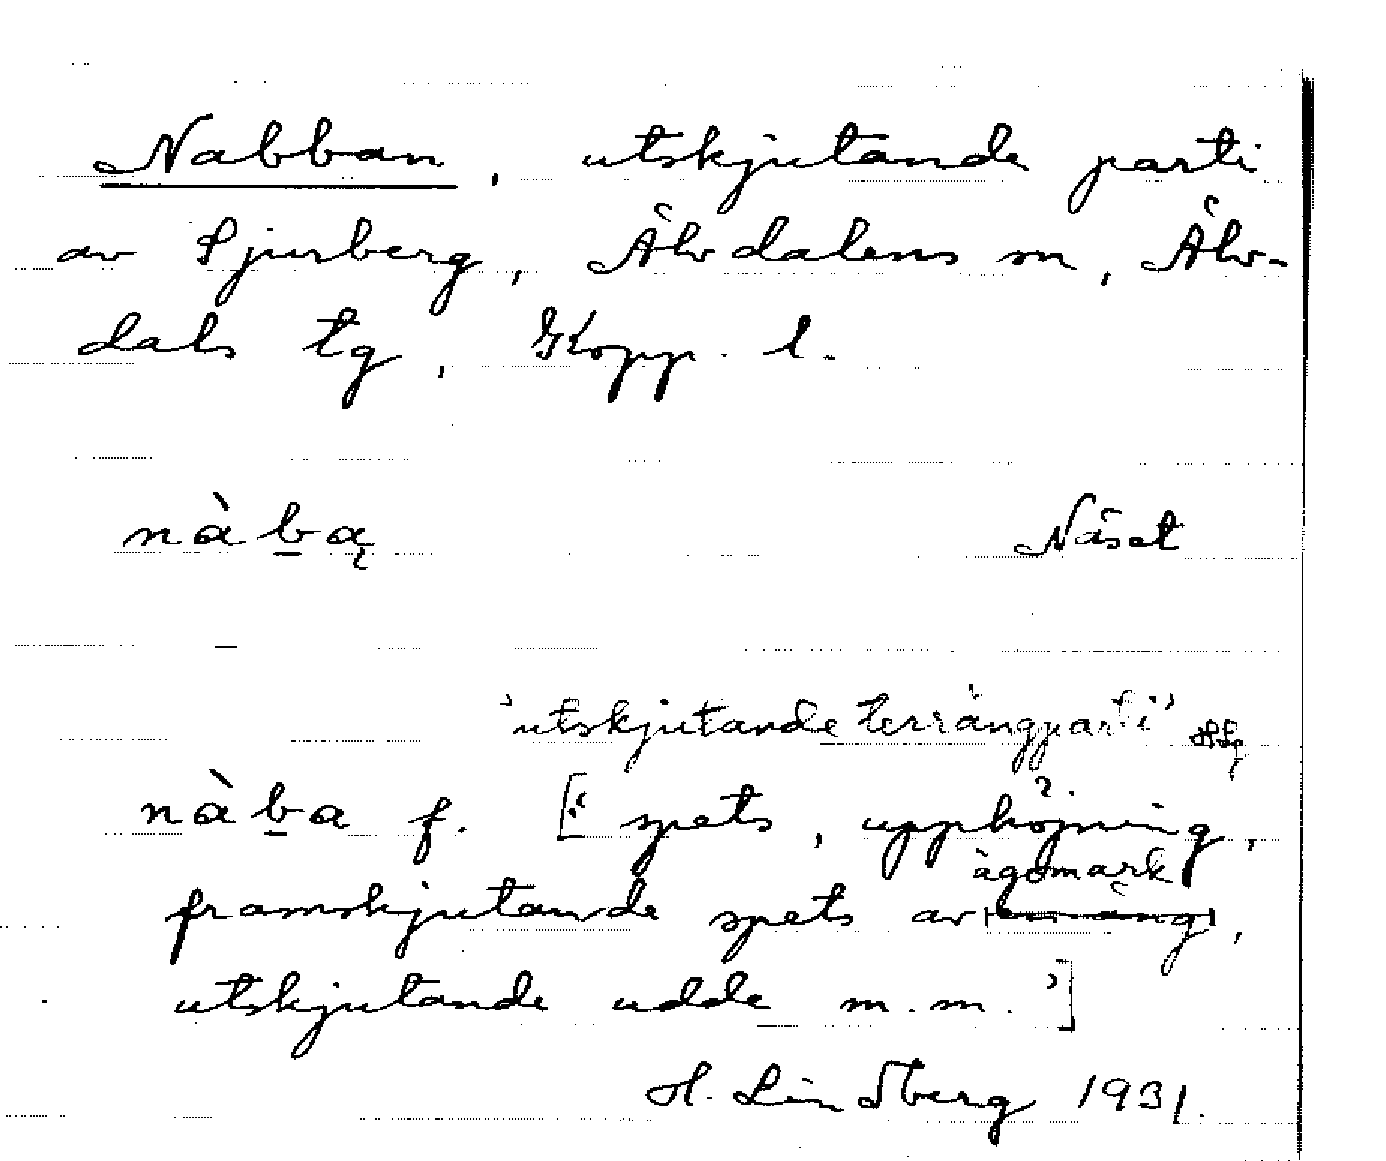 Nabban, utskjutande parti
av Sjurberg, Älvdalens sn, Älv-
dals tg, Kopp. l.
nàb̲ą Näset
'utskjutande terrängparti' HLg
nàb̲a f. [' spets, upphöjning ?.,
ägomark
framskjutande spets av en äng,
utskjutande udde m.m.']
H. Lindberg 1931.